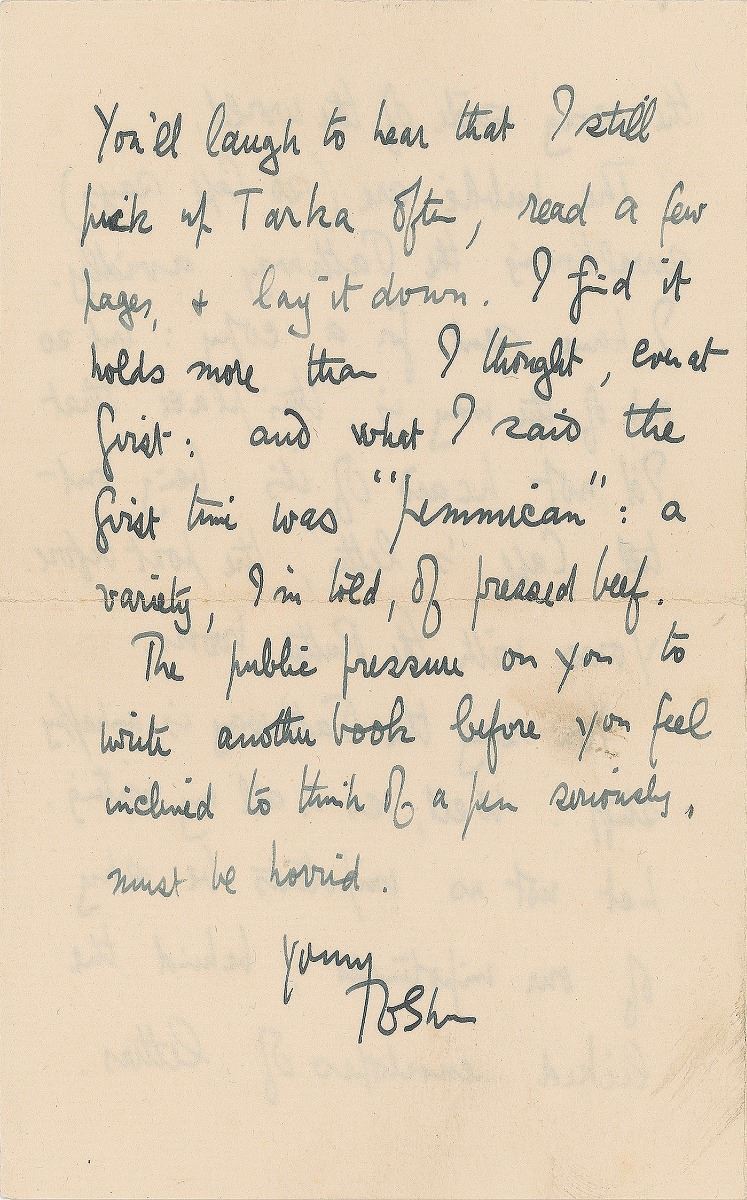 You'll laugh to hear that I still
pick up Tarka often, read a few
pages, & lay it down. I find it
holds more than I thought, even at
first: and what I said the
first time was "pemmican": a
variety, I'm told, of pressed beef.
The public pressure on you to
write another book before you feel
inclined to think of a pen seriously,
must be horrid.
Yours
TEShaw